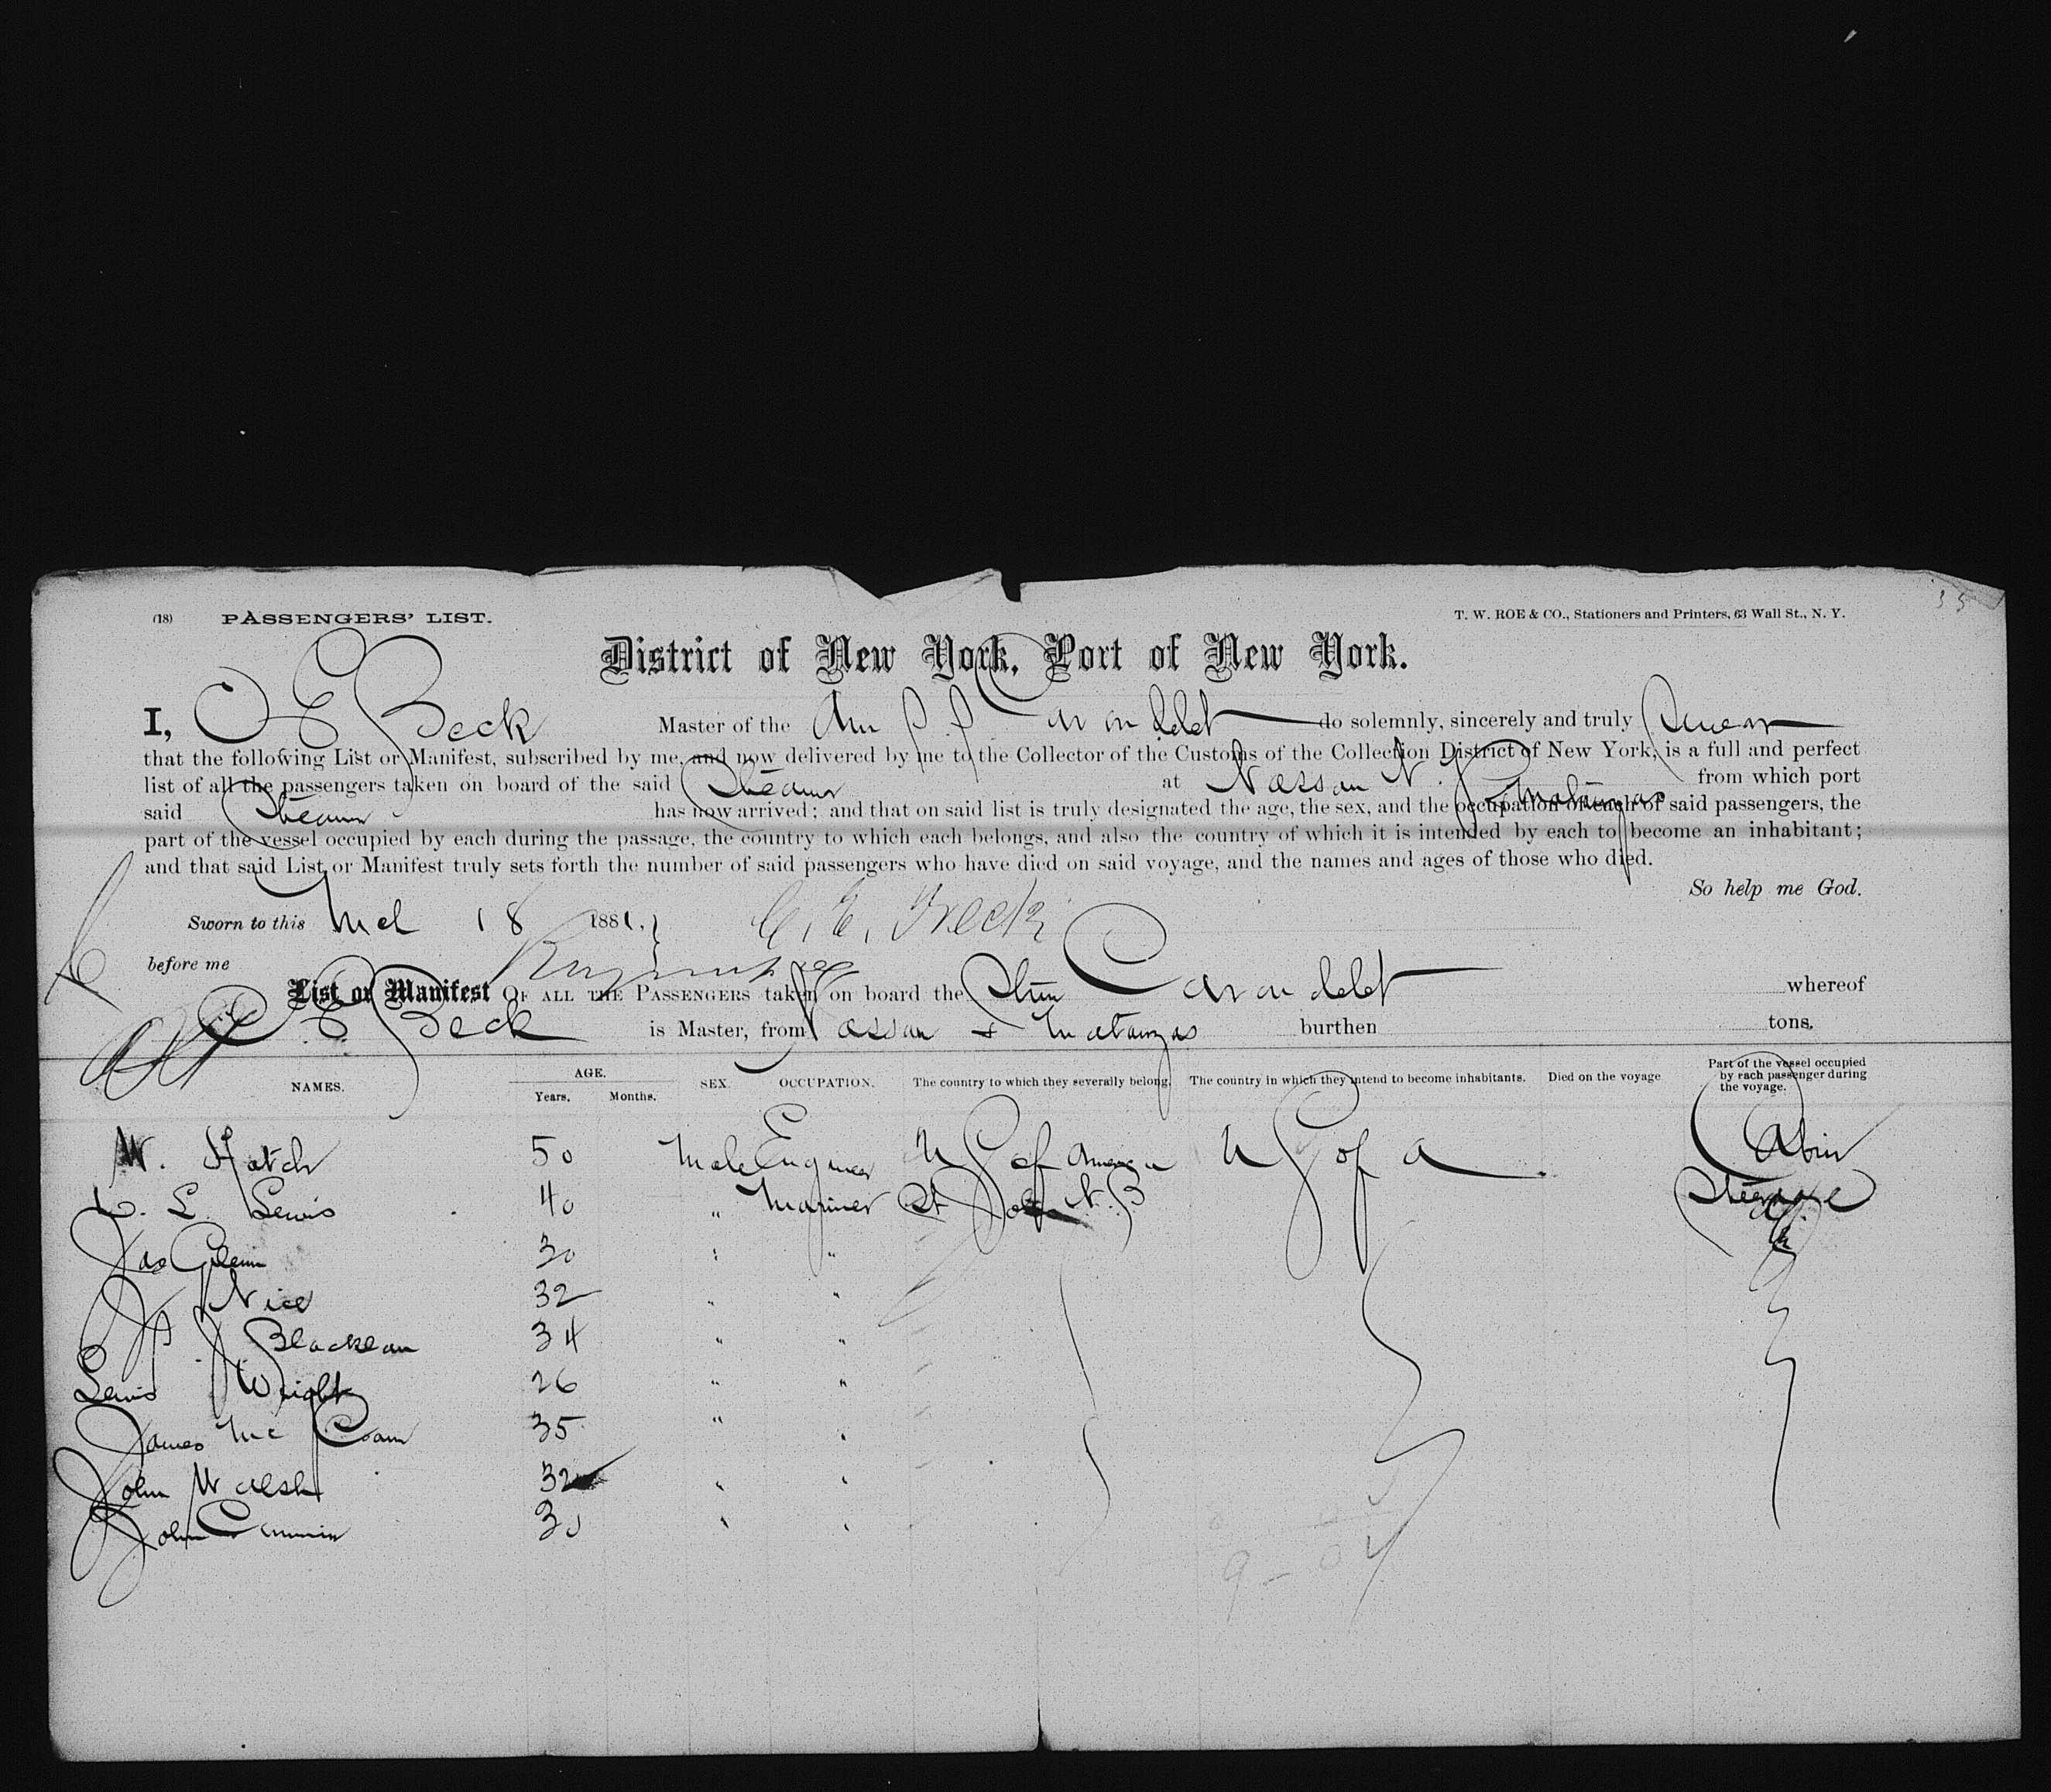 (18) PASSENGERS' LIST. T. W. ROE & CO., Stationers and Printers, 63 Wall St., N. Y. 35
District of New York, Port of New York.
I, C E Beck Master of the Am S. S. Carondelet do solemnly, sincerely and truly Swear
that the following List or Manifest, subscribed by me, and now delivered by me to the Collector of the Customs of the Collection District of New York, is a full and perfect
list of all the passengers taken on board of the said Steamer at Nassau N. P. & Matanzas from which port
said Steamer has now arrived; and that on said list is truly designated the age, the sex, and the occupation of each of said passengers, the
part of the vessel occupied by each during the passage, the country to which each belongs, and also the country of which it is intended by each to become an inhabitant;
and that said List or Manifest truly sets forth the number of said passengers who have died on said voyage, and the names and ages of those who died.
So help me God.
Sworn to this Mch 18 1881, C. E. Beck
before me
List or Manifest OF ALL THE PASSENGERS taken on board the Stmr Carondelet whereof
C E Beck is Master, from Nassau & Matanzas burthen tons.
NAMES. AGE. Years. Months. SEX. OCCUPATION. The country to which they severally belong. The country in which they intend to become inhabitants. Died on the voyage Part of the vessel occupied by each passenger during the voyage.
W. Hatch 50 Male Engineer U S of America U S of A Cabin
L. Lewis 40 " Mariner St John N. B Steerage
Jas Glenn 30 " "
J Nice 32 " "
J. Blacklan 34 " "
Lewis Wright 26 " "
James Mc 35 " "
John Walsh 32 " "
John 30 " "
9 -